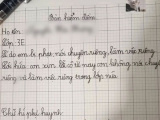 Bản kiểm điểm
Họ tên
Lớp 3E
Lí do em bị phạt nói chuyện riêng, làm việc riêng
Lời hứa: em xin hứa cô từ nay em không nói chuyện
riêng và làm việc riêng trong lớp nữa
Chữ kí phụ huynh